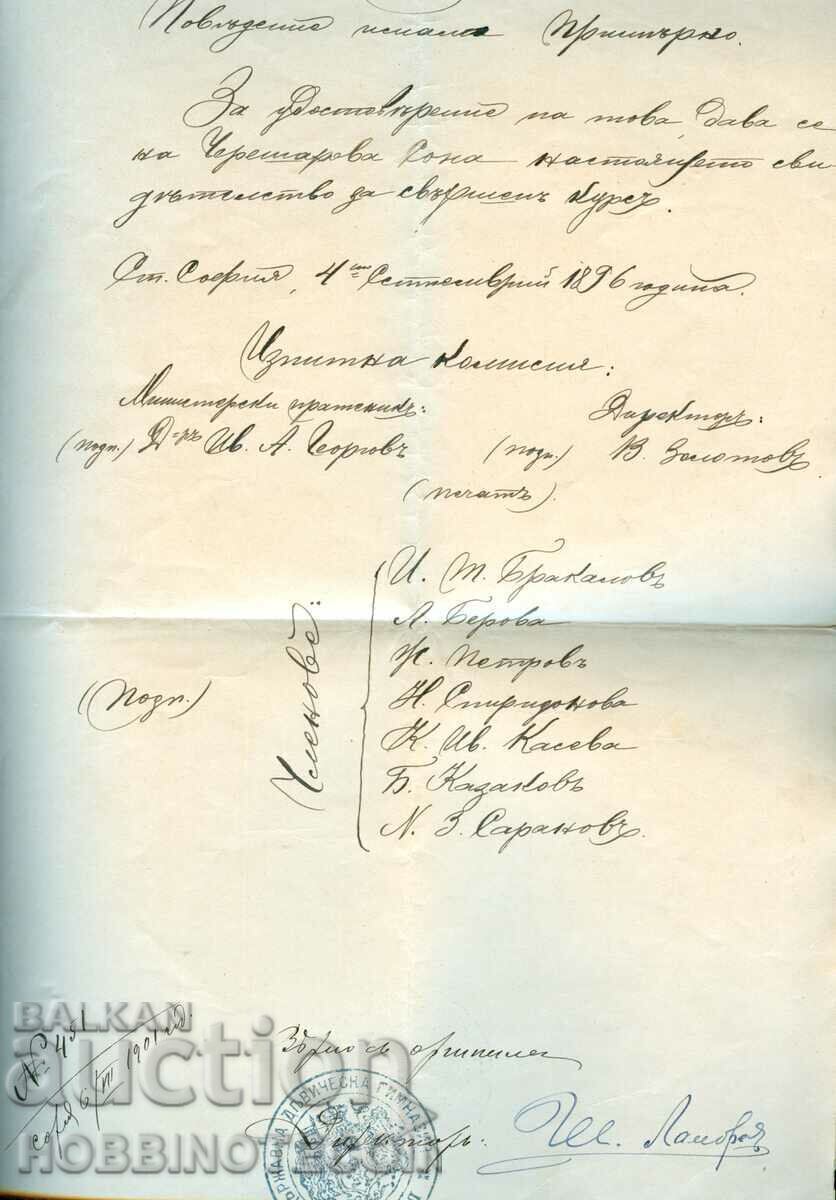 Поведение имала Примѣрно.
За удостовѣрение на това, дава се
на Черешарова Сона настоящето сви-
дѣтелство за свършенъ курсъ.
Ст. София, 4ий Септемврий 1896 година.
Изпитна комисия:
Министерски пратеникъ:
Директоръ:
(подп.) Д-ръ Ив. А. Георговъ
(подп.) В. Золотовъ
(печатъ)
(Подп.)
Членове:
И. Т. Бракаловъ
Л. Берова
Н. Петровъ
Н. Спиридонова
К. Ив. Касева
Б. Казаковъ
N. З. Сарановъ.
№ 451
София 6/III 1901 год.
Вѣрно съ оригинала
Директоръ:
ДЪРЖАВНА ДѢВИЧЕСКА ГИМНАЗ
BALKAN
auction
HOBBINO
.COM